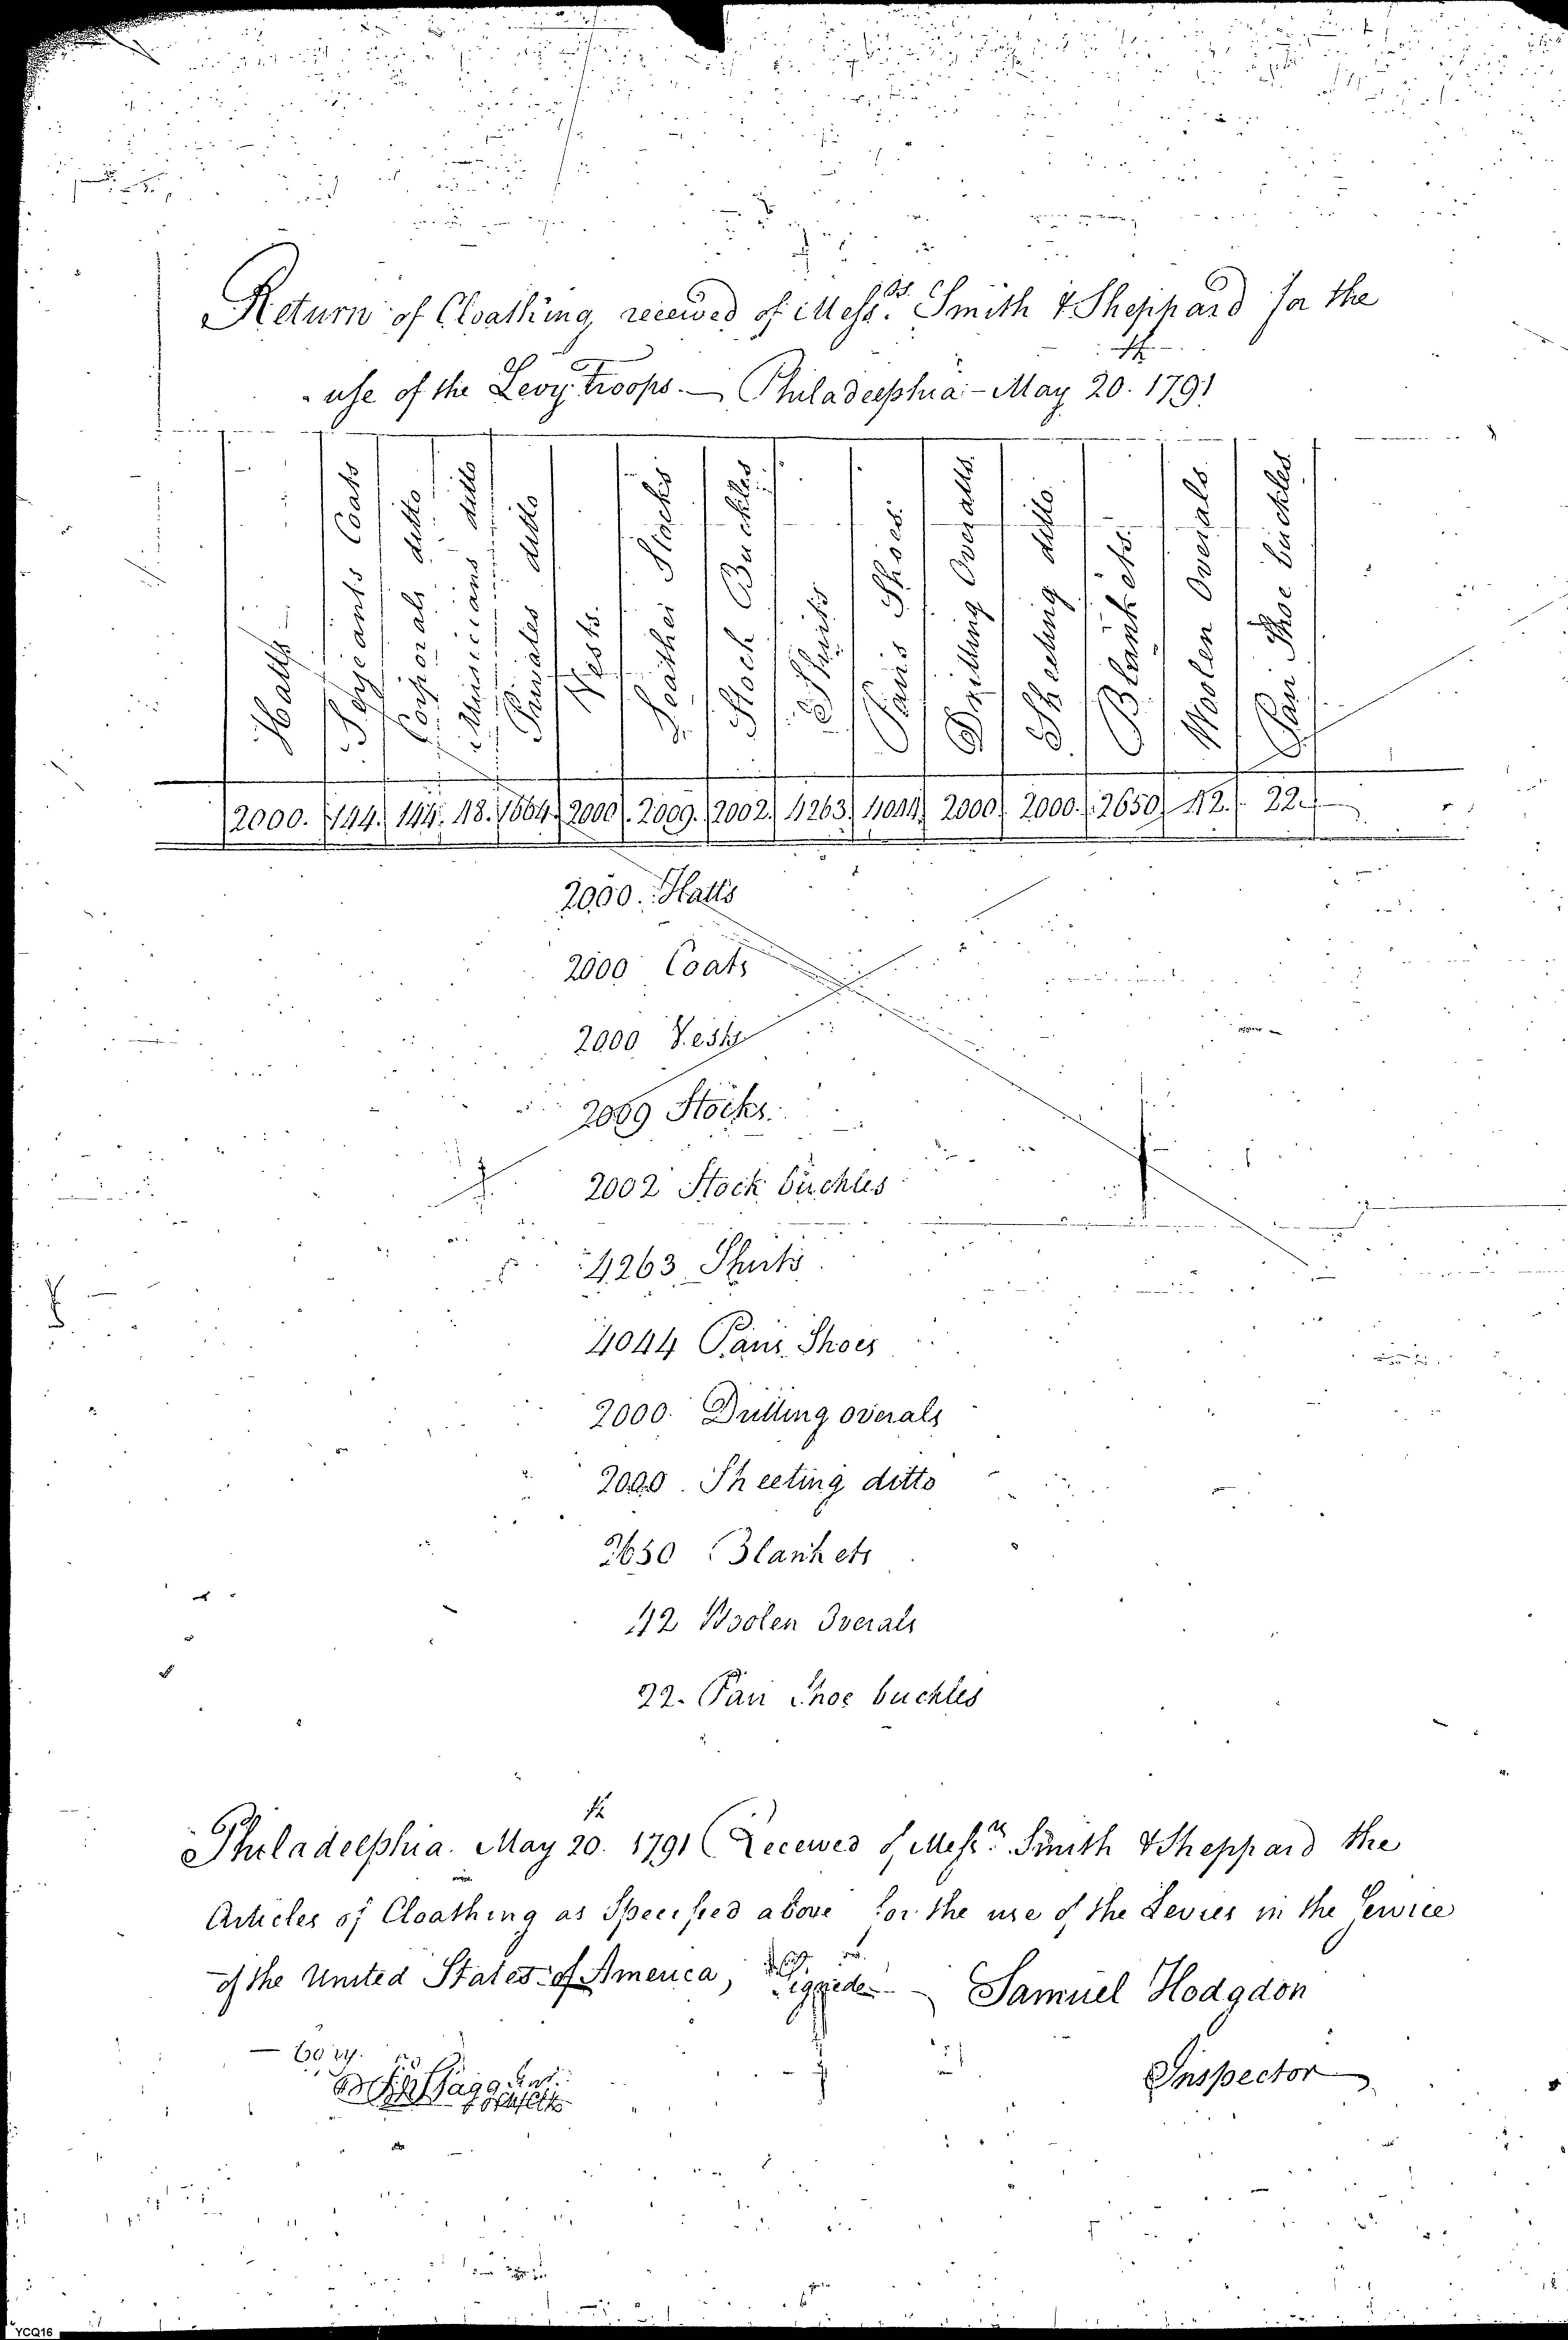 Return of Cloathing, received of Mess.rs Smith & Sheppard for the
use of the Levy troops. — Philadelphia - May 20.th 1791
Hatts
Serjeants Coats
Corporals ditto
Musicians ditto
Privates ditto
Vests.
Leather Stocks
Stock Buckles
Shirts
Pairs Shoes.
Drilling Overalls.
Sheeting ditto
Blankets.
Woolen Overals
Pair Shoe buckles.
2000. 144. 144. 48. 1664. 2000. 2009. 2002. 4263. 4044. 2000. 2000. 2650. 42. 22.
2000. Hatts
2000 Coats
2000 Vests
2009 Stocks.
2002 Stock buckles
4263 Shirts
4044 Pairs Shoes
2000. Drilling overals
2000. Sheeting ditto
2650 Blankets
42 Woolen Overals
22. Pair Shoe buckles
Philadelphia. May 20.th 1791 Received of Mess.rs Smith & Sheppard the
Articles of Cloathing as Specified above for the use of the Levies in the Service
of the United States of America, Signed — Samuel Hodgdon
— Copy. Inspector
YCQ16